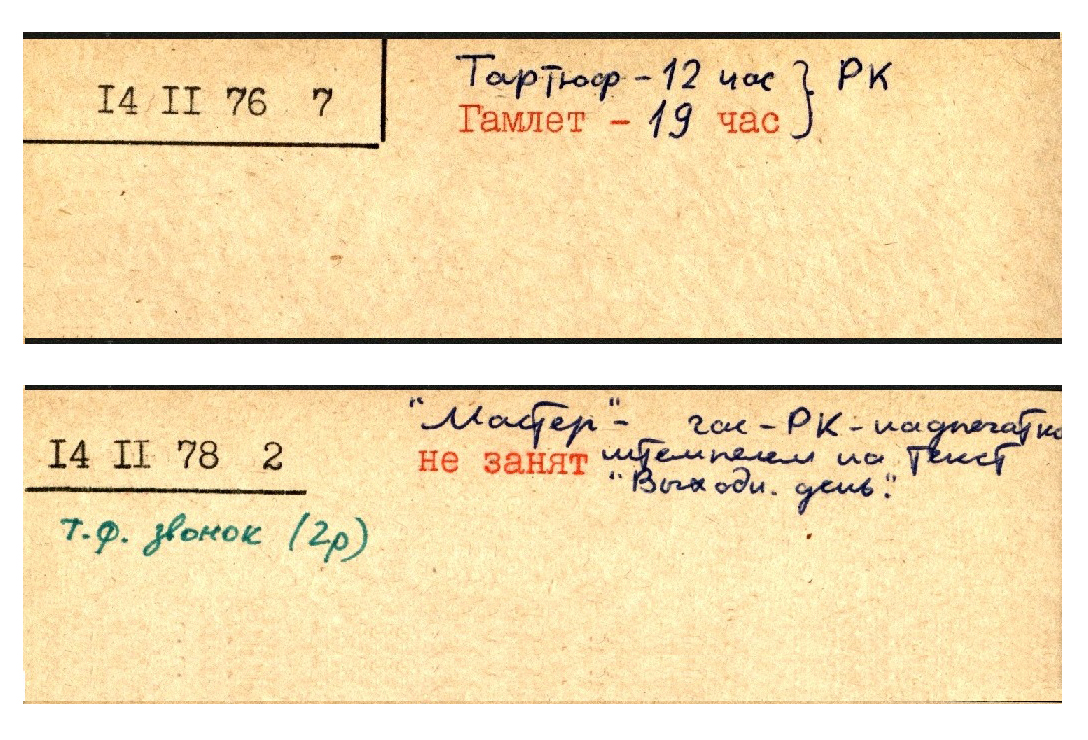 I4 II 76 7
Тартюф - 12 час } РК
Гамлет - 19 час
I4 II 78 2
"Мастер" - час - РК - надпечатка
не занят штемпелем на текст
"Выходн. день".
т.ф. звонок (2р)